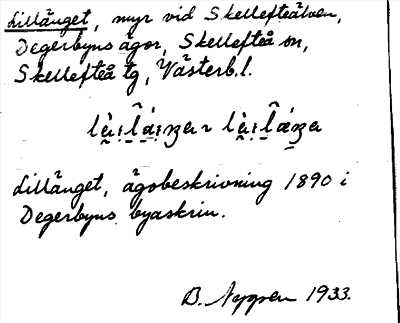 Lillänget, myr vid Skellefteälven,
Degerbyns ägor, Skellefteå sn,
Skellefteå tg, Västerb.l.
Lillänget, ägobeskrivning 1890 i
Degerbyns byaskrin.
B. 1933.